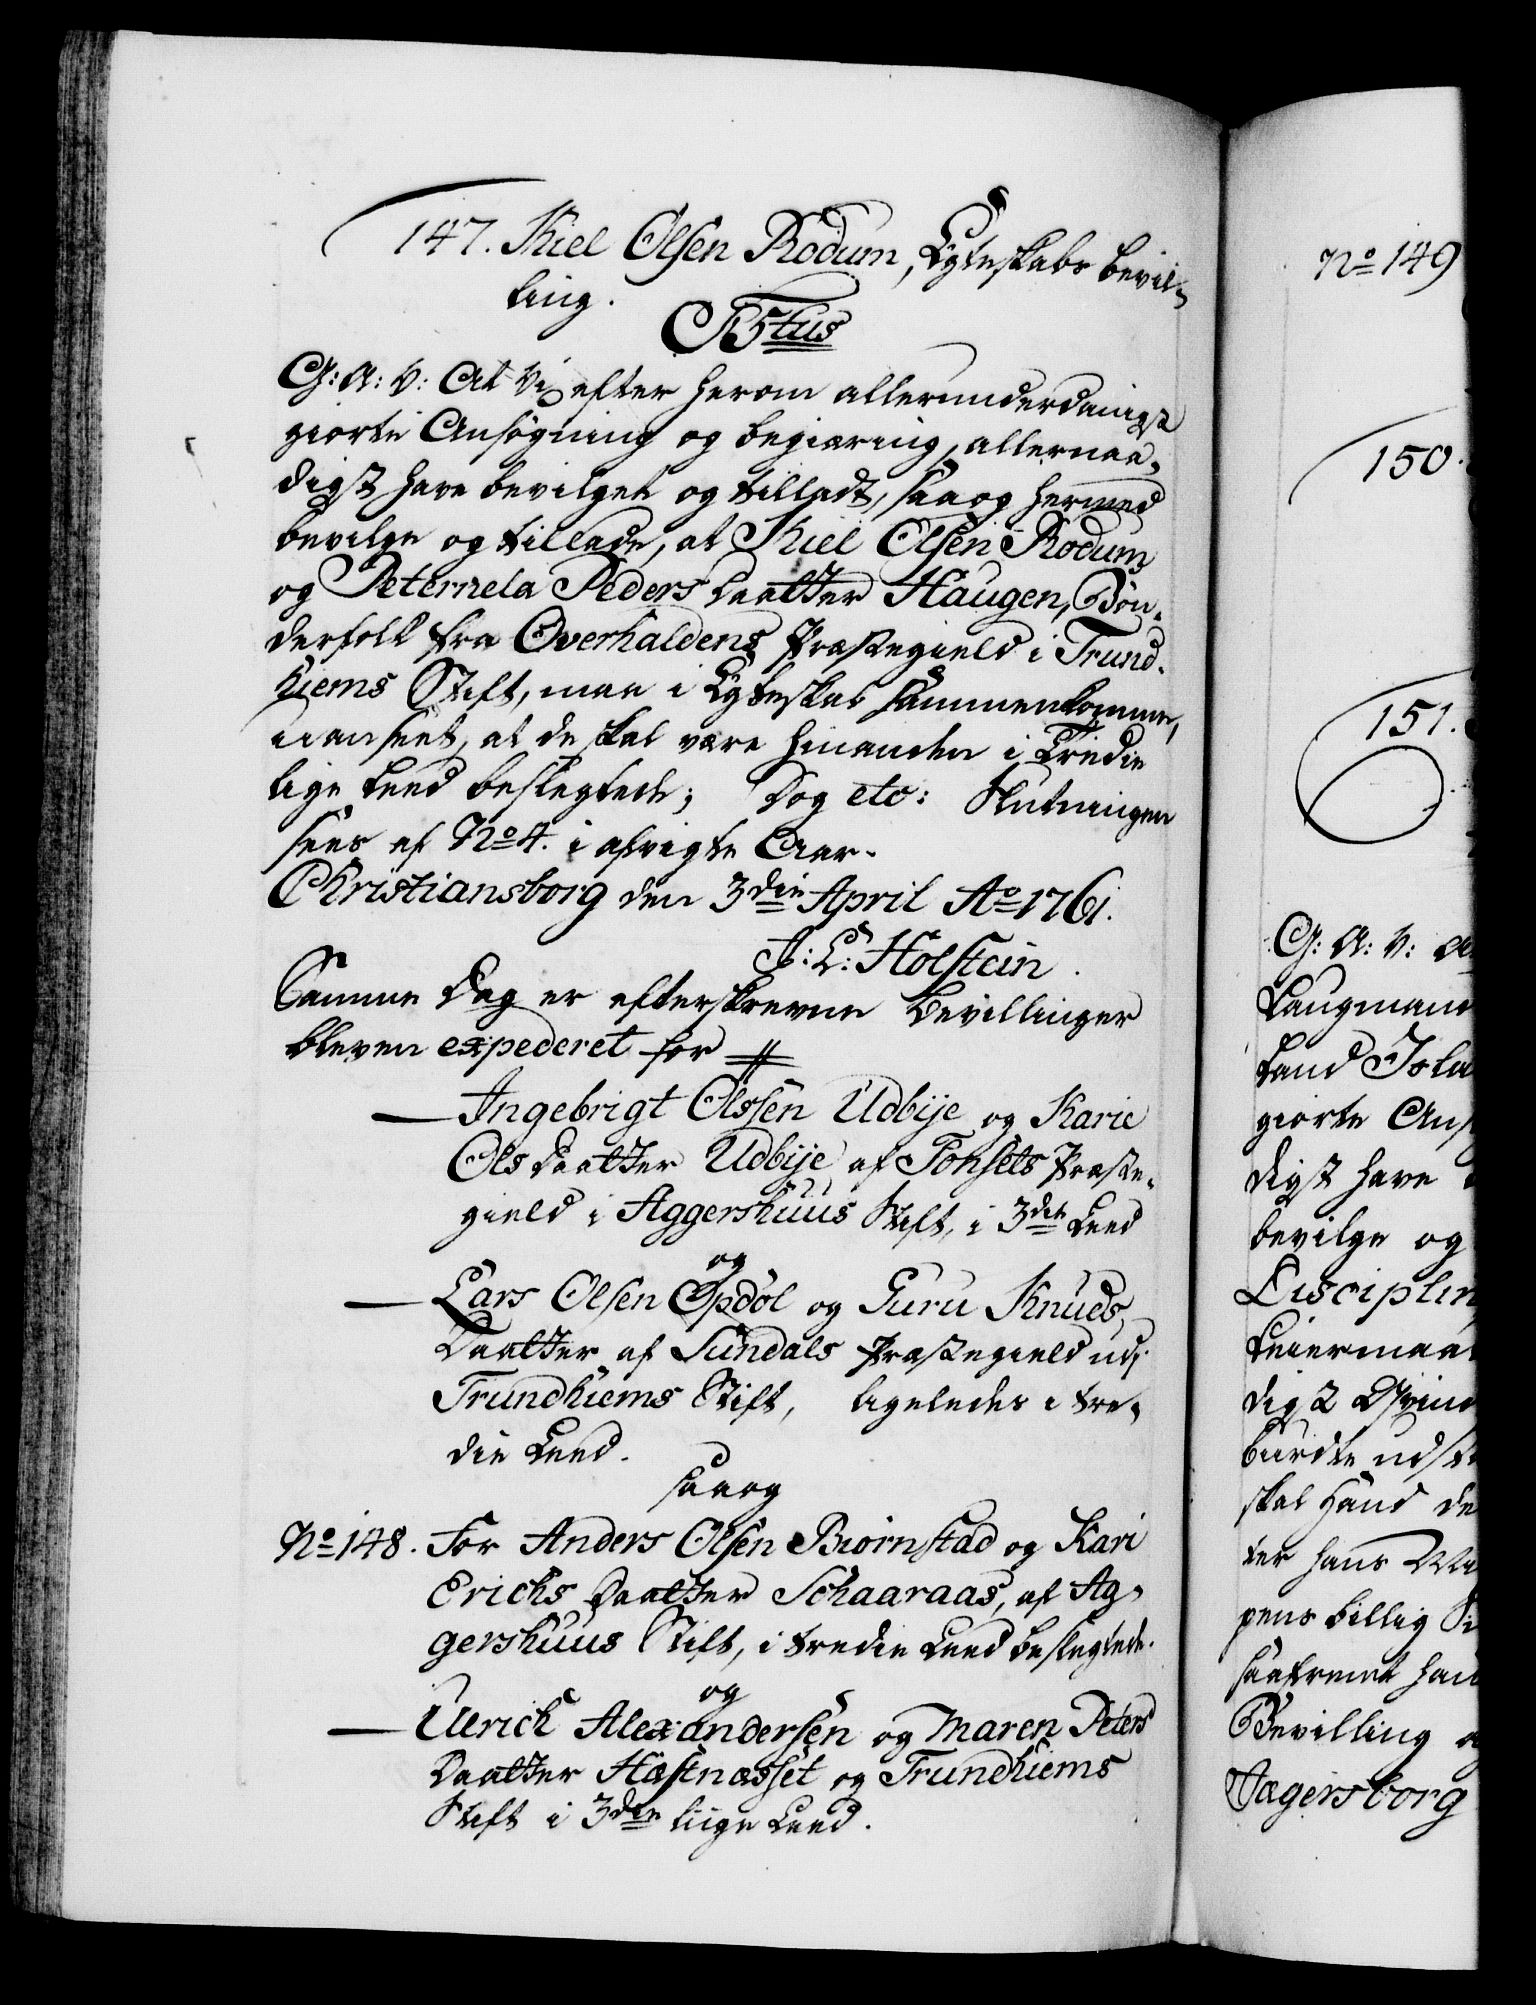 147. Kiel Olsen Rodum, Egteskabs Bevil-
ling.
C 5tus
G: A: V: At Vi efter herom allerunderdanigst
giorte Ansögning og begiæring, allernaa-
digst have bevilget og tilladt, saa og hermed
bevilge og tillade, at Kiel Olsen Rodum
og Peternela Peders Daatter Haugen, Bön-
derfolk fra Overhaldens Præstegield i Trund-
hiems Stift, maa i Egteskab sammenkomme,
uanseet, at de skal være hinanden i Tredie
lige Leed beslegtede; Dog etc: Slutningen
sees af No 4. i afvigte Aar.
Christiansborg den 3die April Ao 1761.
J: L: Holstein.
Samme Dag er efterskrevne Bevillinger
bleven expederet for
— Ingebrigt Olssen Udbije og Karie
Ols Daatter Udbije af Tonsets Præste-
gield i Aggershuus Stift, i 3die Leed
og
— Lars Olsen Opdöl og Guru Knuds
Daatter af Sundals Præstegield udi
Trundhiems Stift, ligeledes i tre-
die Leed.
saa og
No 148. For Anders Olsen Biornstad og Kari
Erichs Daatter Schaaraas, af Ag-
gershuus Stift, i tredie Leed beslegtede.
og
— Ulrich Alexandersen og Maren Peters
Daatter Hæstnæsset og Trundhiems
Stift i 3die liige Leed.
No 149
150.
151.
G: A: V: A
Laugmand
land Isla
giorte Ans
digst have
bevilge og
Disciplin
Leiermaal
digst
burdte udst
skal Hand de
ter hans
pens billig
saafremt han
Bevilling
Jægersborg